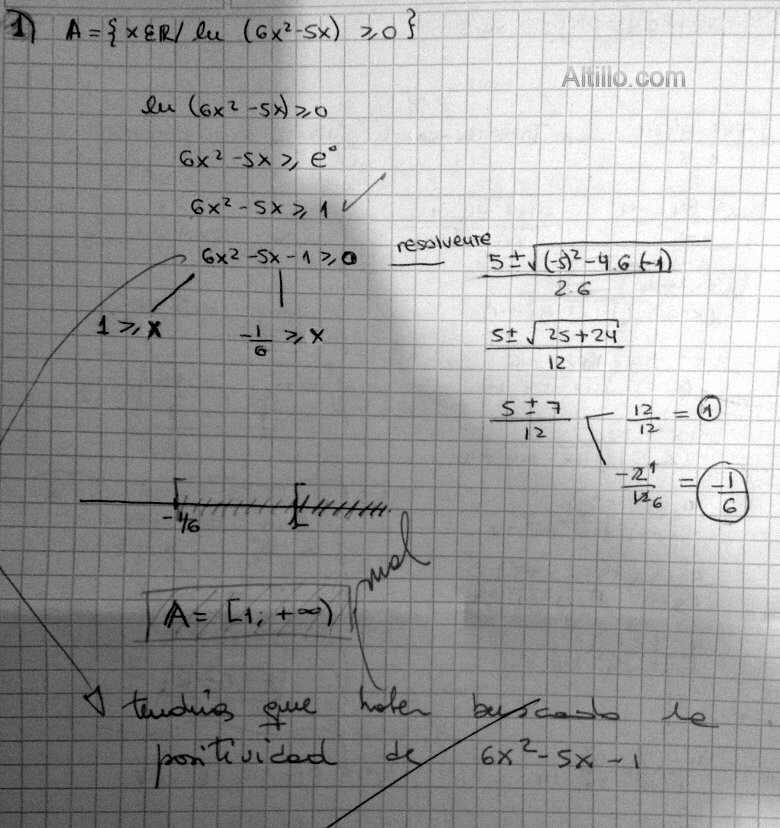 1) A = {x ∈ ℝ / ln (6x²-5x) ≥ 0}
Altillo.com
ln (6x² -5x) ≥ 0
6x² -5x ≥ e⁰
6x² -5x ≥ 1 ✓
6x² -5x -1 ≥ 0 resolvente
5 ± √(-5)² -4.6 (-1) / 2.6
1 ≥ x
-1/6 ≥ x
5 ± √25+24 / 12
5 ± 7 / 12
12/12 = 1
-2 1 / 12 6 = -1/6
-1/6
mal
A = [1; +∞)
tendrías que haber buscado la
positividad de 6x² -5x -1